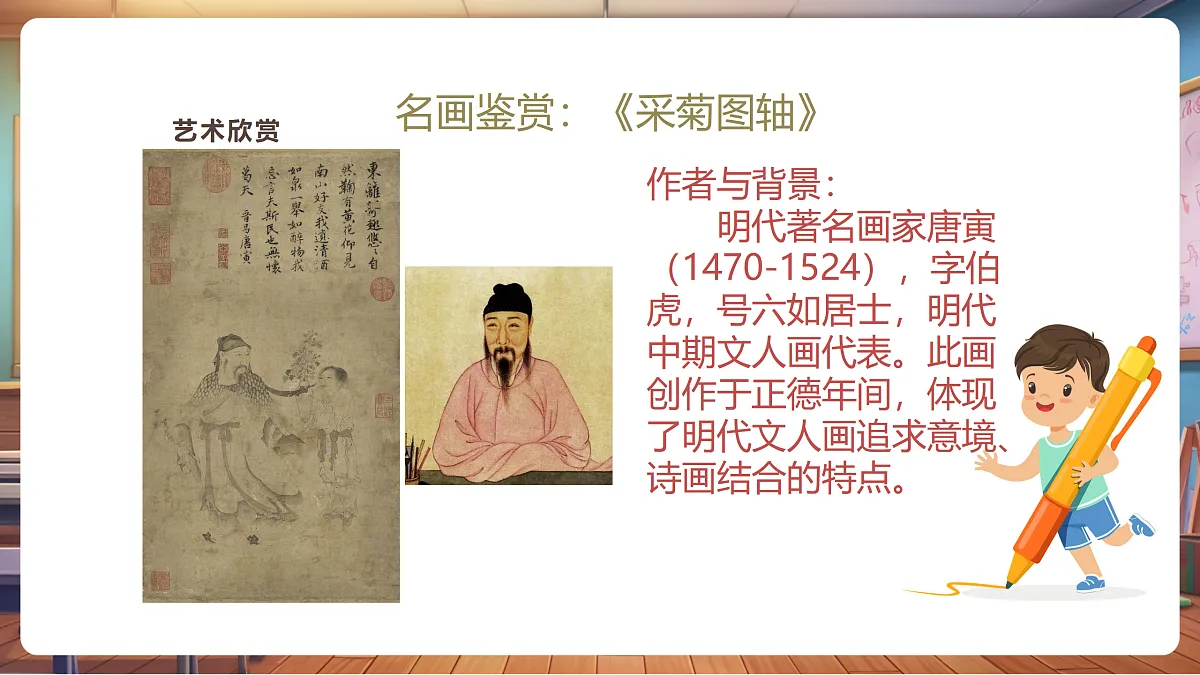 名画鉴赏：《采菊图轴》
艺术欣赏
東籬寄趣悠〻自
然鞠有黃花仰見
南山好友我遺清酒
如泉一舉如醉物我
忘言夫斯民也無懷
葛天 晉昌唐寅
作者与背景：
明代著名画家唐寅
（1470-1524），字伯
虎，号六如居士，明代
中期文人画代表。此画
创作于正德年间，体现
了明代文人画追求意境、
诗画结合的特点。